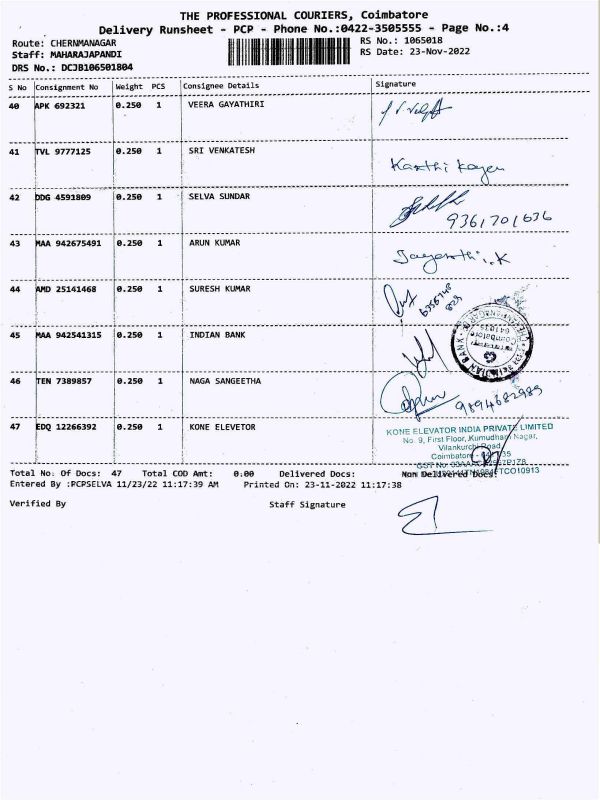 THE PROFESSIONAL COURIERS, Coimbatore
Delivery Runsheet - PCP - Phone No.:0422-3505555 - Page No.:4
Route: CHERNMANAGAR RS No.: 1065018
Staff: MAHARAJAPANDI RS Date: 23-Nov-2022
DRS No.: DCJB106501804
S No Consignment No Weight PCS Consignee Details Signature
40 APK 692321 0.250 1 VEERA GAYATHIRI
41 TVL 9777125 0.250 1 SRI VENKATESH Karthi kayen
42 DDG 4591809 0.250 1 SELVA SUNDAR
9361701636
43 MAA 942675491 0.250 1 ARUN KUMAR Jayanthi.K
44 AMD 25141468 0.250 1 SURESH KUMAR
45 MAA 942541315 0.250 1 INDIAN BANK
46 TEN 7389857 0.250 1 NAGA SANGEETHA
9894682989
47 EDQ 12266392 1 0.250 KONE ELEVETOR
KONE ELEVATOR INDIA PRIVATE LIMITED
No. 9, First Floor, Kumudham Nagar,
Vilankurchi Road
Coimbatore
Total No. Of Docs: 47 Total COD Amt: 0.00 Delivered Docs: Non Delivered Docs:
Entered By :PCPSELVA 11/23/22 11:17:39 AM Printed On: 23-11-2022 11:17:38
Verified By Staff Signature